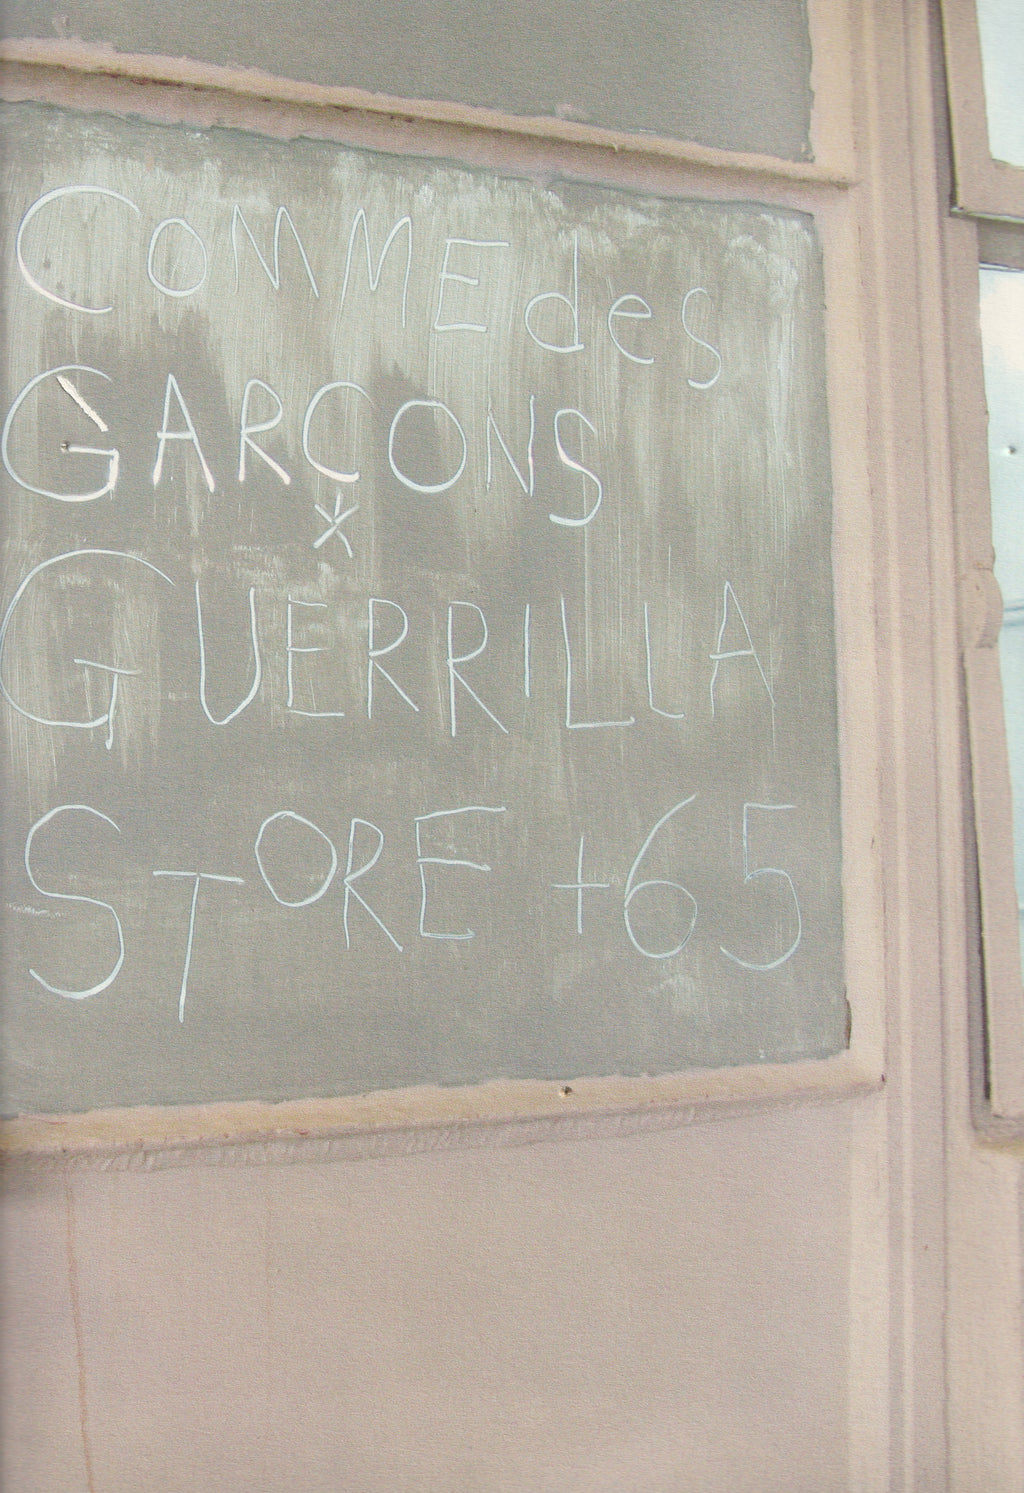 COMME des
GARÇONS
GUERRILLA
STORE +65